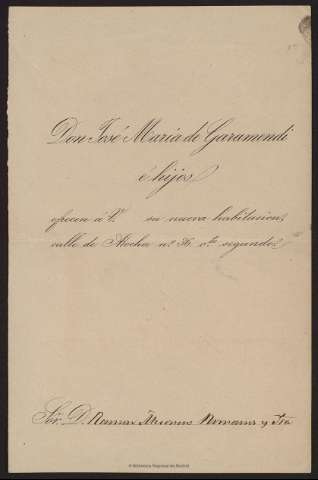 Don José María de Garamendi
é hijos
ofrecen á V. su nueva habitacion,
calle de Atocha nº 36, cto segundo
Sor. D. Ramon Romanos y Sra
© Biblioteca Regional de Madrid